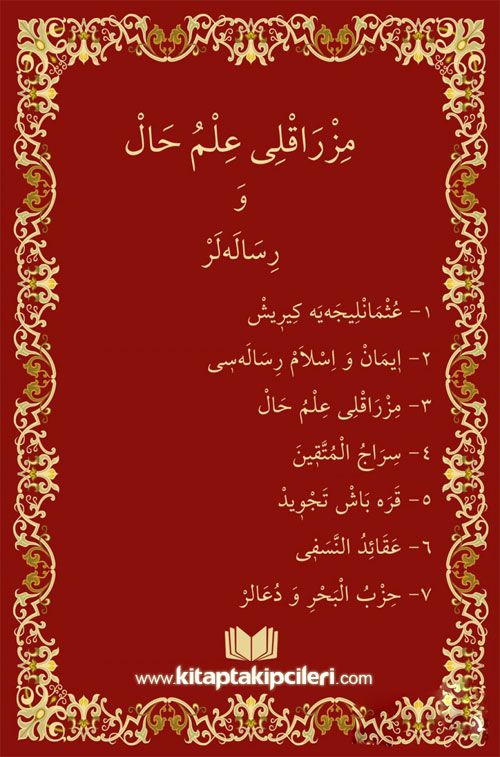 مِزْرَاقْلِى عِلْمُ حَالْ
وَ
رِسَالَه‌لَرْ
١- عُثْمَانْلِيجَه‌يَه كِيرِيشْ
٢- اِيمَانْ وَ اِسْلَامْ رِسَالَه‌سِى
٣- مِزْرَاقْلِى عِلْمُ حَالْ
٤- سِرَاجُ الْمُتَّقِينَ
٥- قَرَه بَاشْ تَجْوِيدْ
٦- عَقَائِدُ النَّسَفِى
٧- حِزْبُ الْبَحْرِ وَ دُعَالَرْ
www.kitaptakipcileri.com